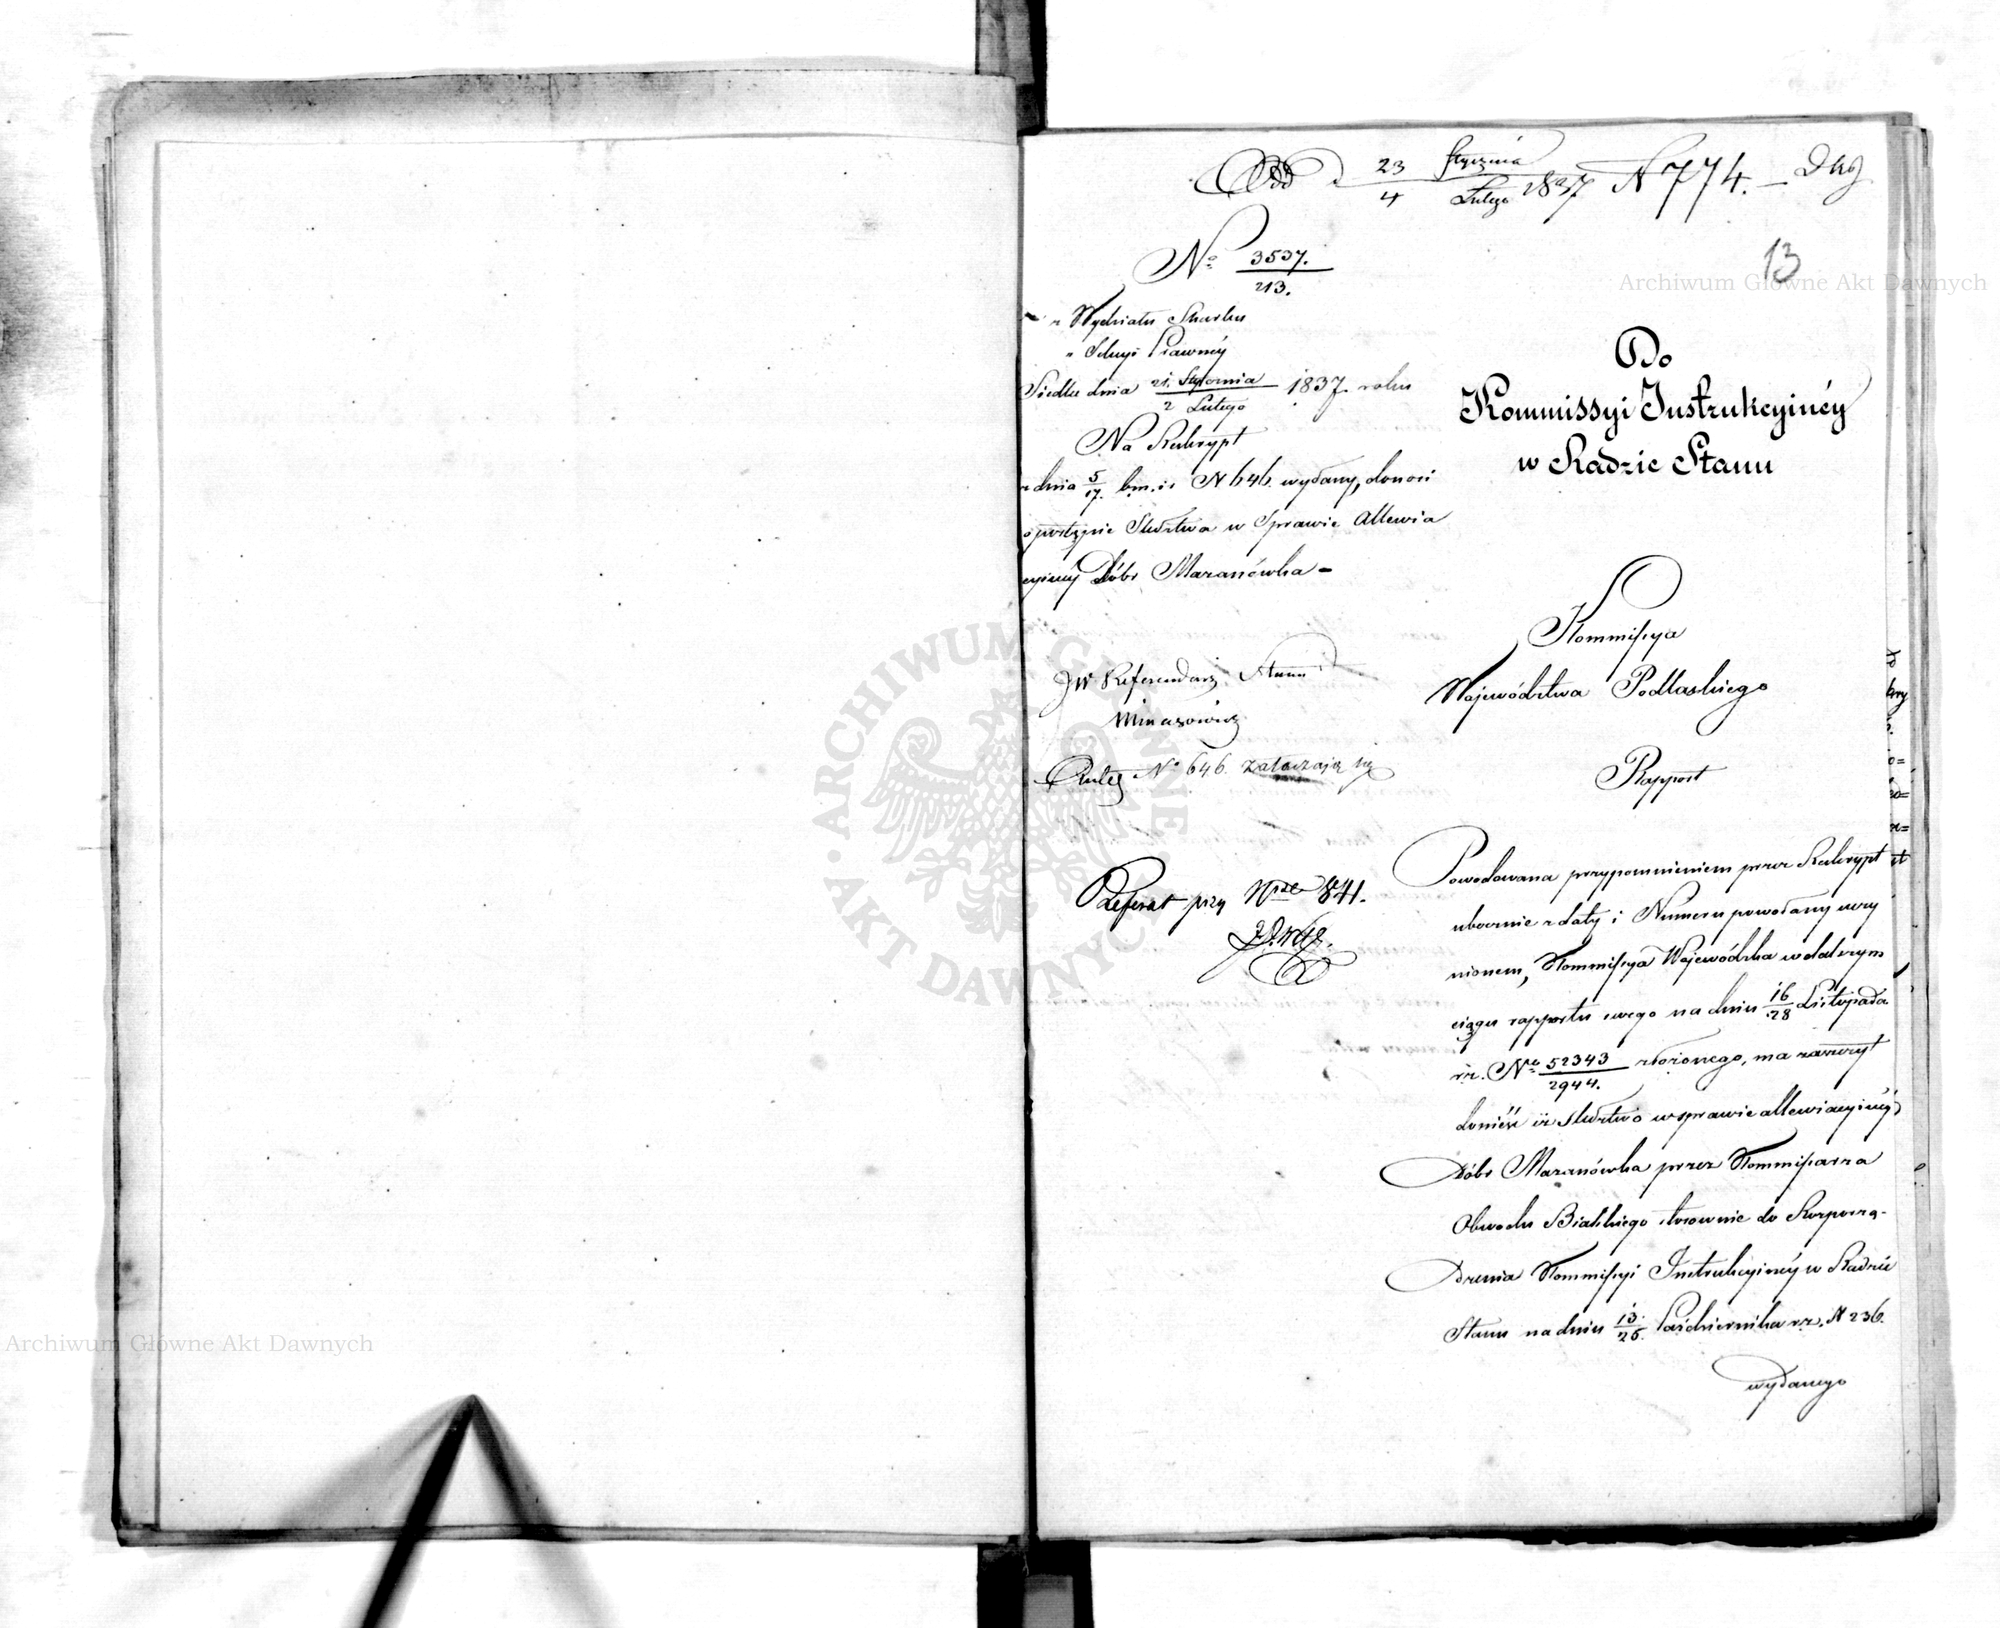 Odd d 23/4 Stycznia/Lutego 1837 N 774.
13
Archiwum Główne Akt Dawnych
No 3537./213.
z Wydziału Skarbu
" Sekcyi Prawnéy
Siedlce dnia 21. Stycznia/2 Lutego 1837. roku
Na Reskrypt
z dnia 5/17. b.m. i r. N 646. wydany, donosi
o postępie Śledztwa w Sprawie Allewia
cyinéy Dóbr Mazanówka =
JW Referendarz Stanu
Minasowicz
No 646. załączają się
Referat przy Nrze 841.
Do
Kommissyi Instrukcyinéy
w Radzie Stanu
Kommissya
Województwa Podlaskiego
Rapport
Powodowana przypomnieniem przez Reskrypt
ubocznie z daty i Numeru powołany uczy
nionem, Kommissya Wojewódzka w dalszym
ciągu rapportu swego na dniu 16/28 Listopada
v.r. No 52343/2944. złożonego, ma zaszczyt
donieść iż śledztwo w sprawie allewiacyinéy
Dóbr Mazanówka przez Kommissarza
Obwodu Bialskiego stosownie do Rozporzą-
dzenia Kommissyi Instrukcyinéy w Radzie
Stanu na dniu 13/25. Października v.r. N 236.
wydanego
Archiwum Główne Akt Dawnych
ARCHIWUM GŁÓWNE AKT DAWNYCH